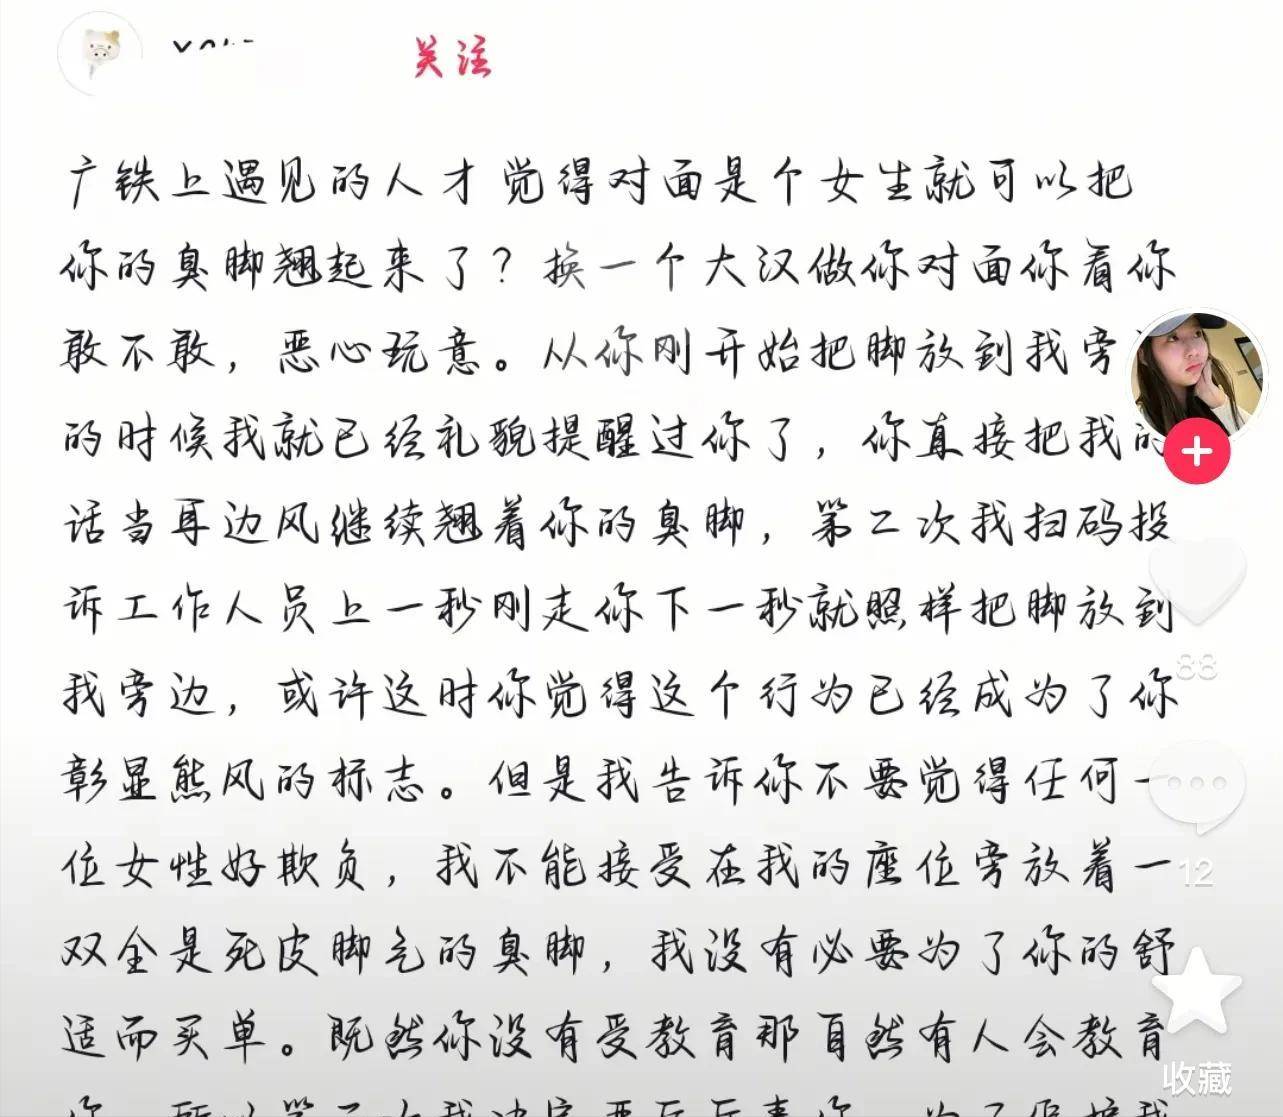 关注
广铁上遇见的人才 觉得对面是个女生就可以把
你的臭脚翘起来了？换一个大汉做你对面你看你
敢不敢，恶心玩意。从你刚开始把脚放到我旁
的时候我就已经礼貌提醒过你了，你直接把我的
话当耳边风继续翘着你的臭脚，第二次我扫码投
诉工作人员上一秒刚走你下一秒就照样把脚放到
我旁边，或许这时你觉得这个行为已经成为了你
彰显熊风的标志。但是我告诉你不要觉得任何一
位女性好欺负，我不能接受在我的座位旁放着一
双全是死皮脚气的臭脚，我没有必要为了你的舒
适而买单。既然你没有受教育那自然有人会教育
88
12
收藏